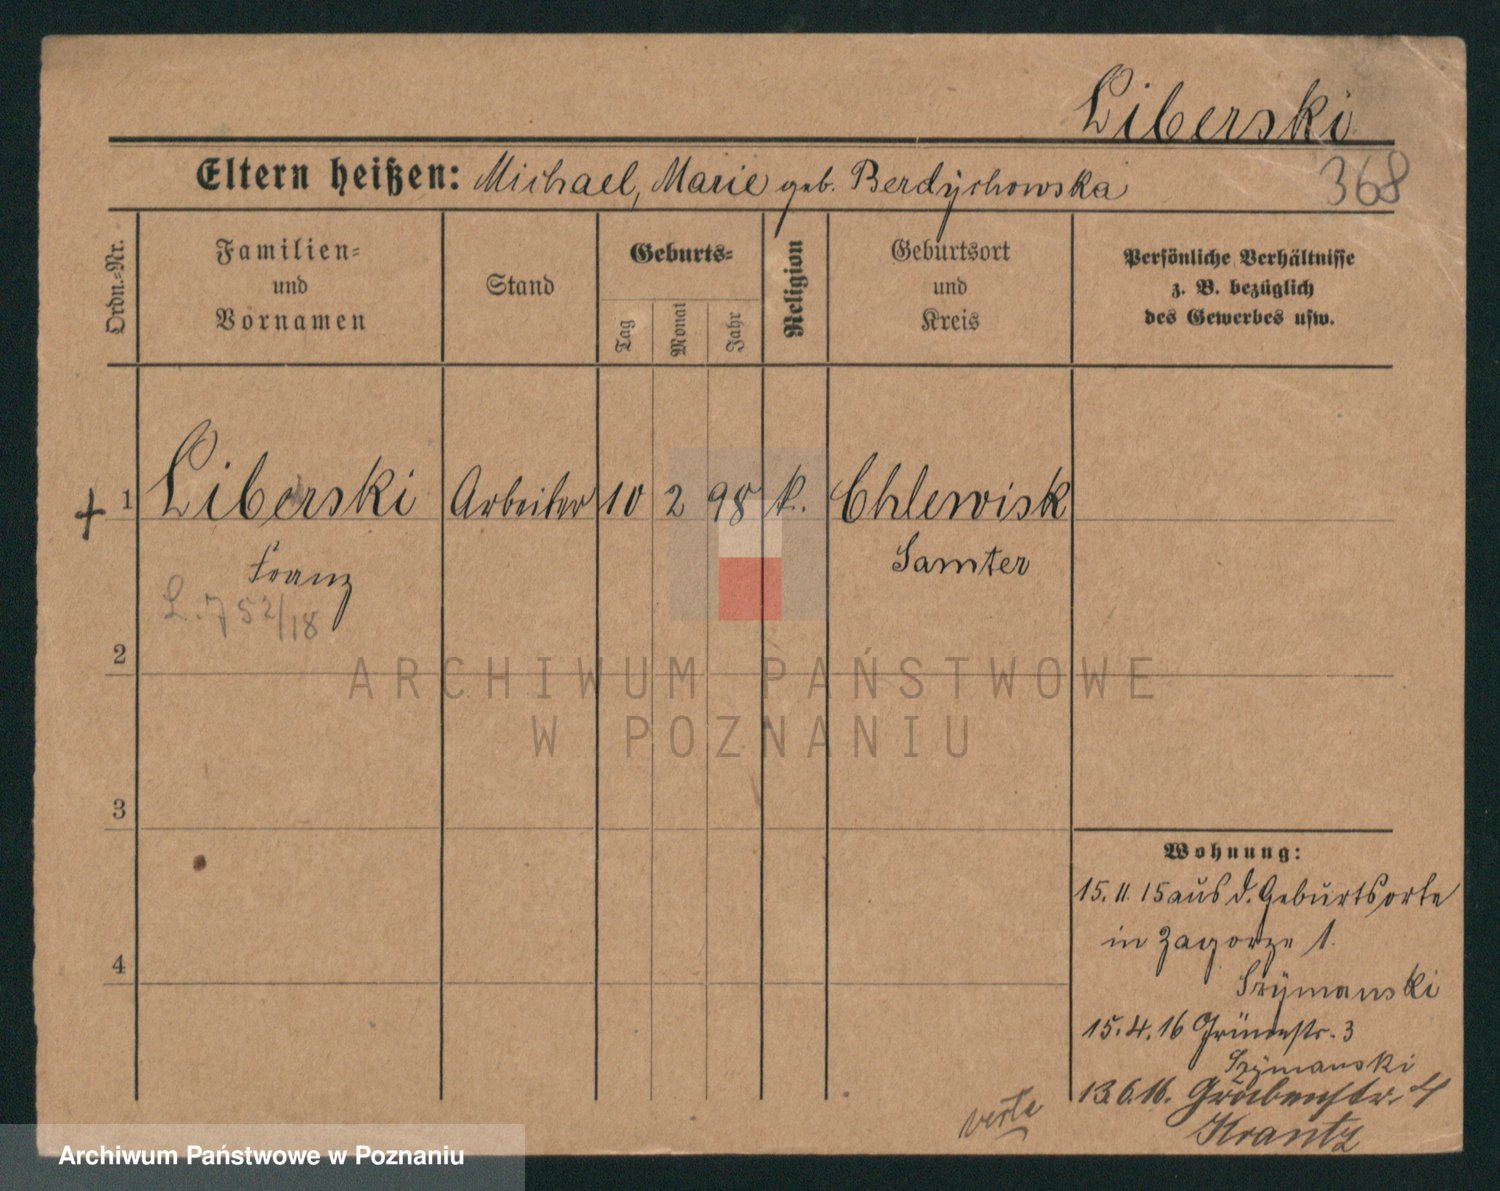 Liberski
Eltern heißen: Michael, Marie geb. Berdychowska
368
Ordn.-Nr.
Familien-
und
Vornamen
Stand
Geburts-
Tag
Monat
Jahr
Religion
Geburtsort
und
Kreis
Persönliche Verhältnisse
z. B. bezüglich
des Gewerbes usw.
+ 1 Liberski Arbeiter 10 2 98 k. Chlewisk
Franz Samter
L. 752/18
2
ARCHIWUM PAŃSTWOWE
W POZNANIU
3
Wohnung:
15. 11. 15 aus d. Geburtsorte
in Zagorze 1.
4
Szymanski
15. 4. 16 Grünestr. 3
Szymanski
13. 6. 16. Grabenstr. 4
Krantz
verte
Archiwum Państwowe w Poznaniu